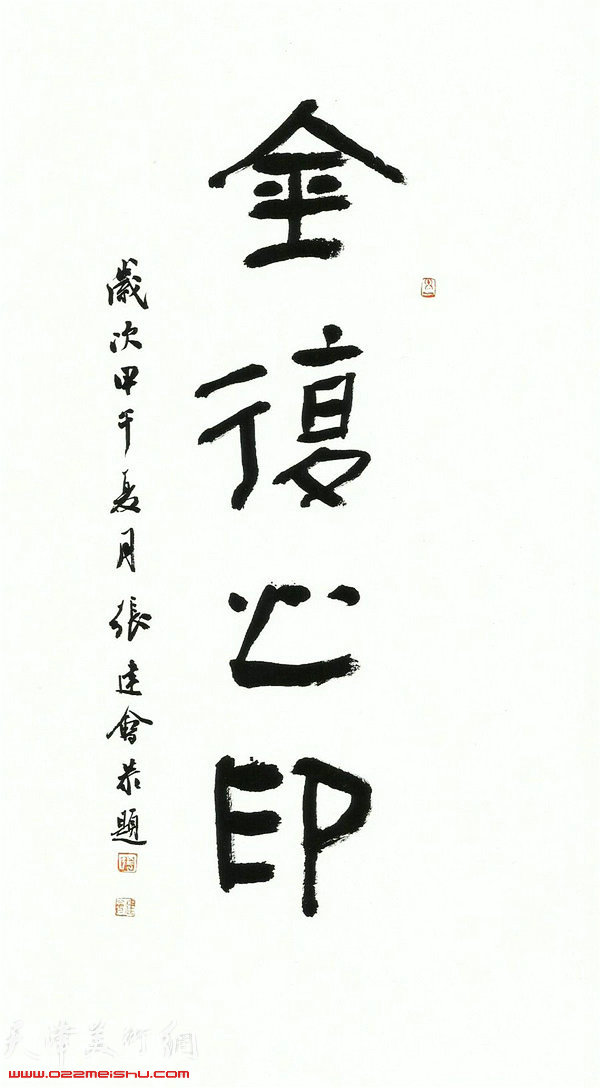 金復之印
歲次甲午夏月張建會恭題
天津美術網
www.022meishu.com